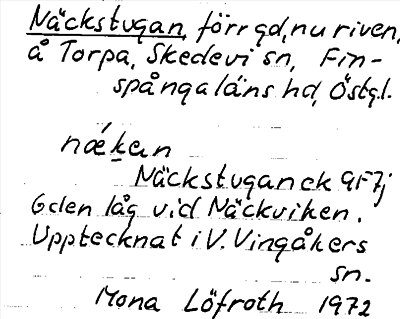 Näckstugan, förr gd, nu riven,
å Torpa, Skedevi sn, Fin-
spånga läns hd, Östgl.
nǽkan
Näckstugan ek 9F7j
Gden låg vid Näckviken.
Upptecknat i V. Vingåkers
sn.
Mona Löfroth 1972